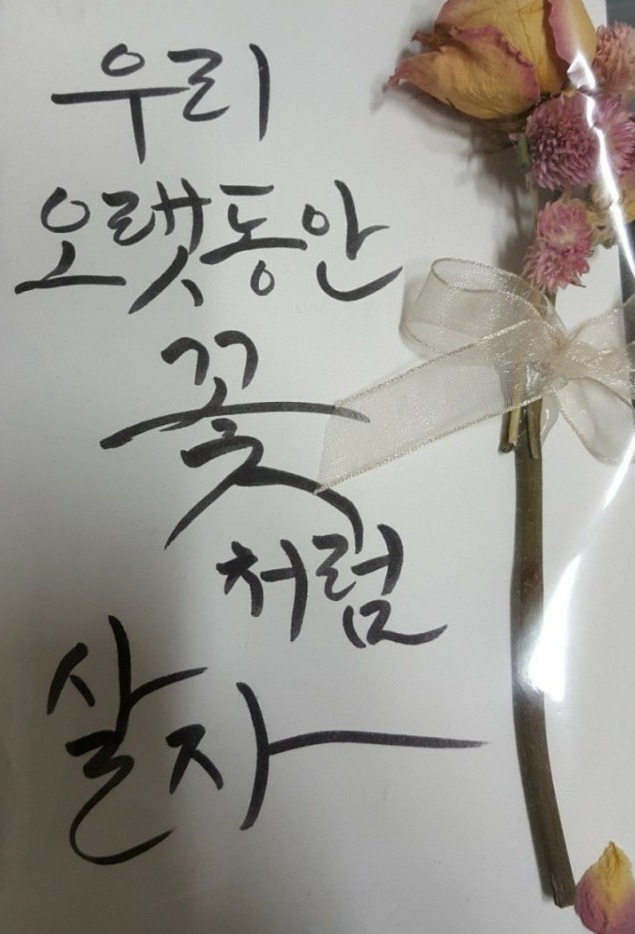 우리
오랫동안
꽃
처럼
살자